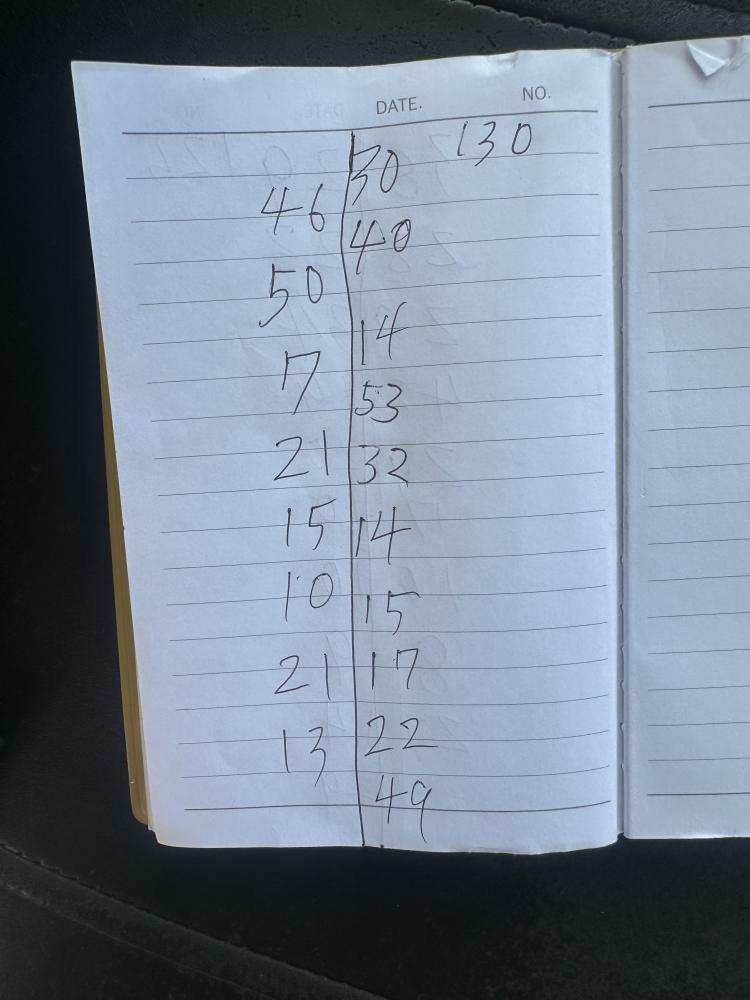 DATE. NO.
30 130
46
40
50
14
7
53
21
32
15
14
10
15
21
17
13
22
49